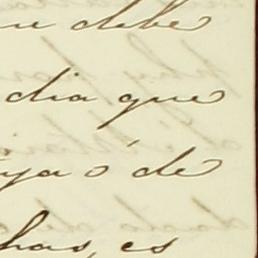 debe
dia que
ó de
has, es